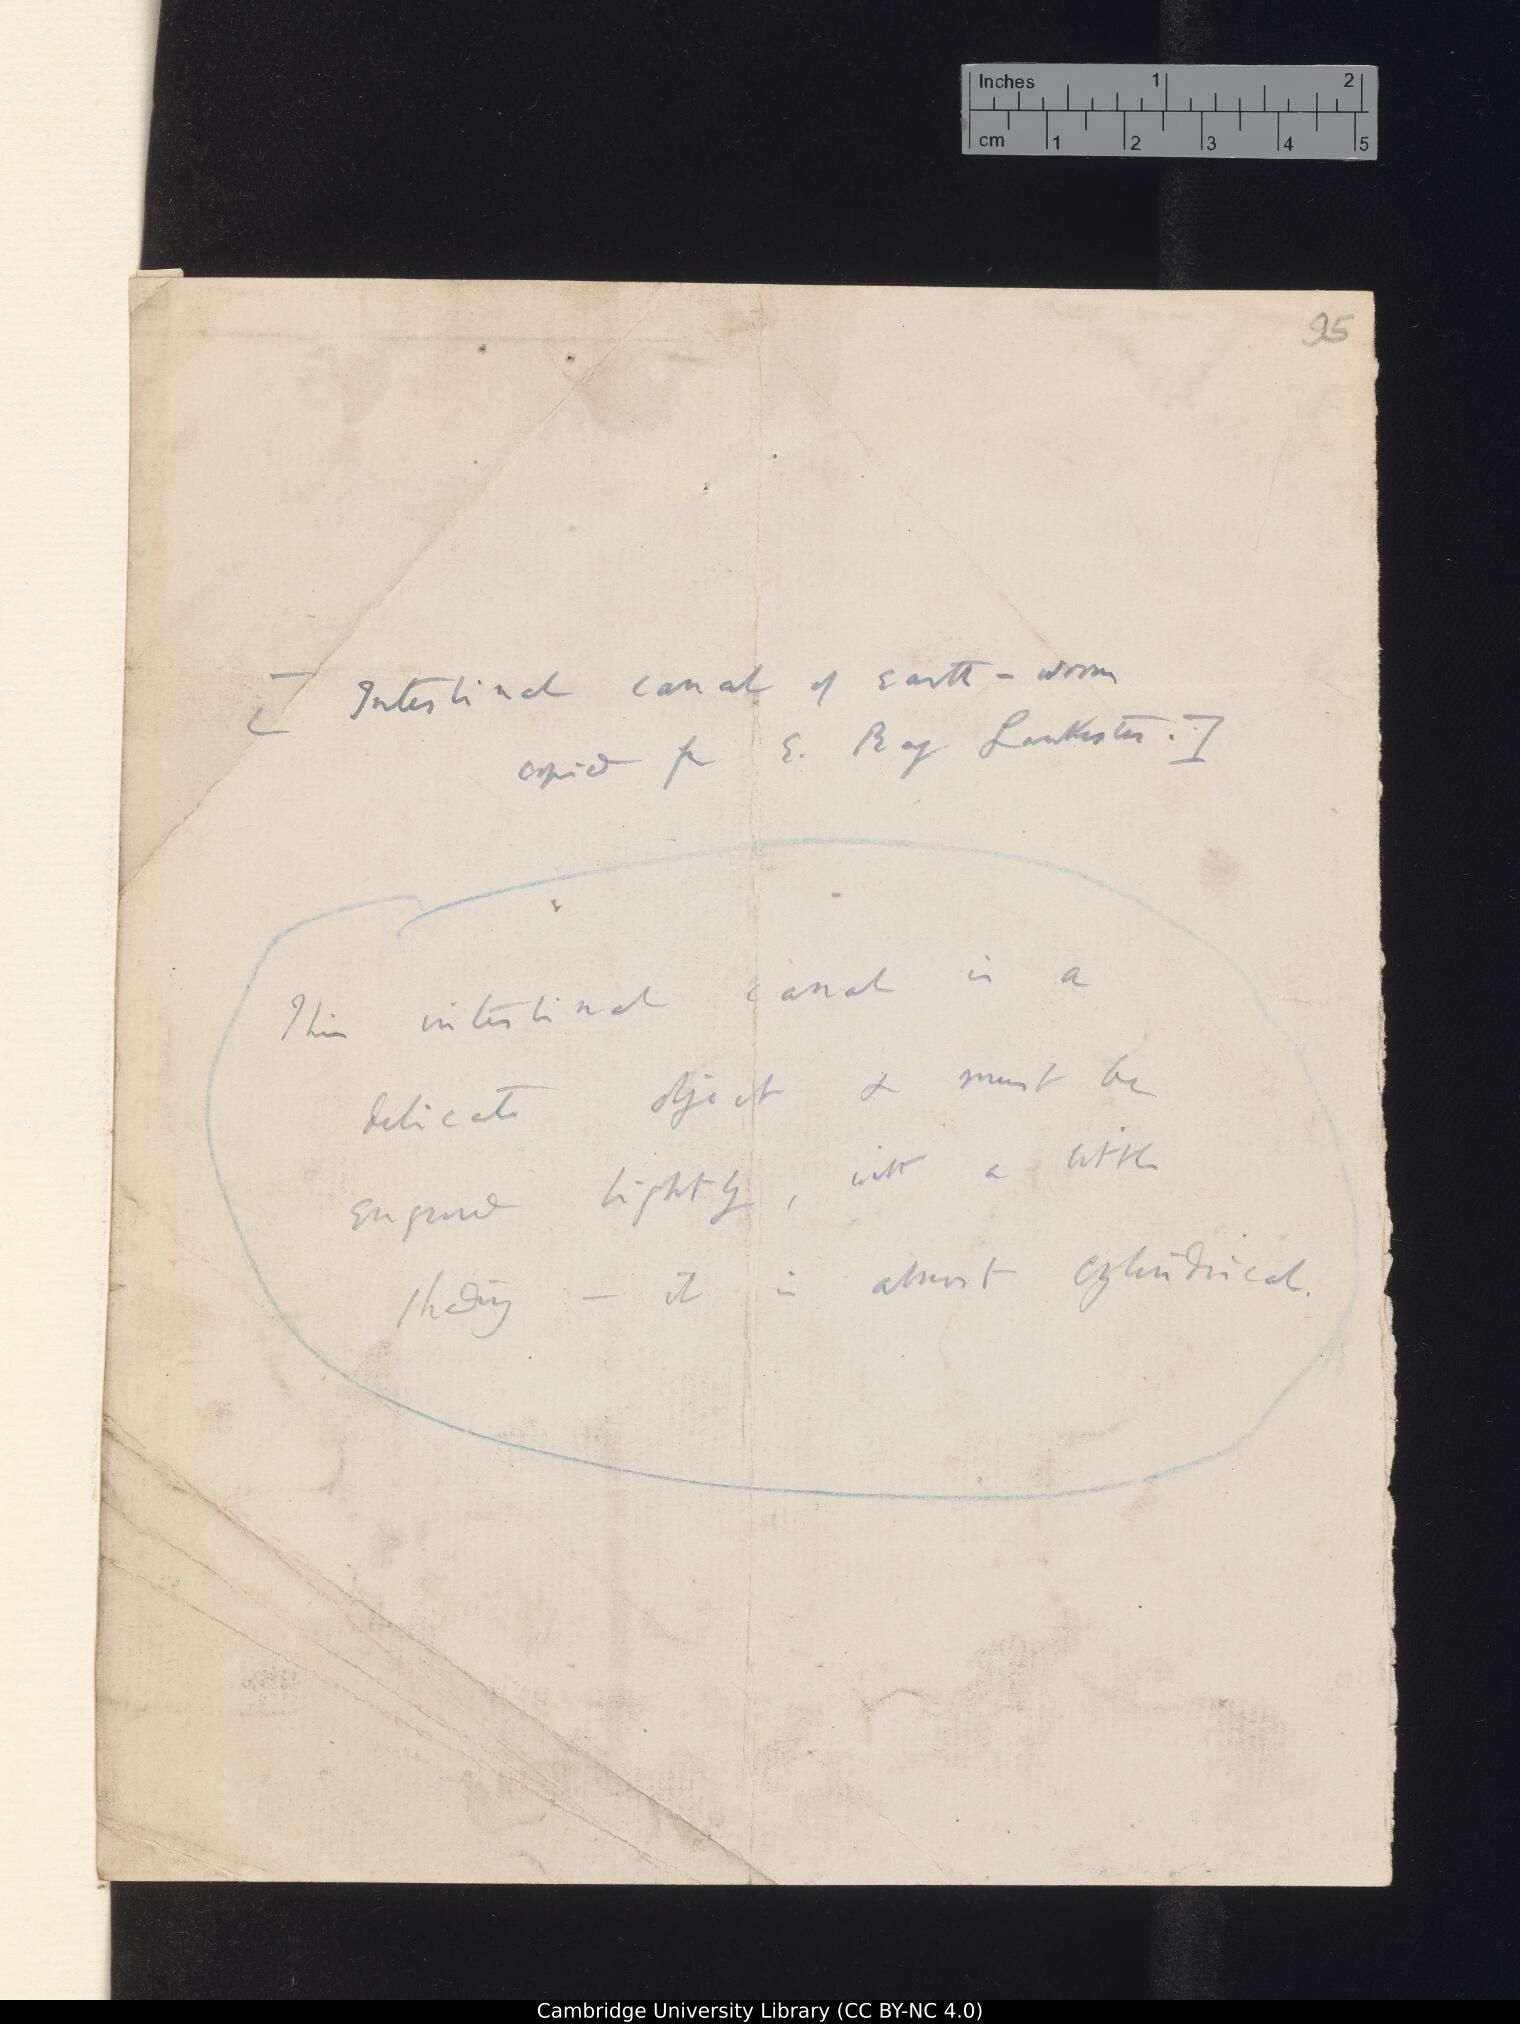 Inches 1 2
cm 1 2 3 4 5
95
[Intestinal canal of earth-worm
copied fr E. Ray Lankester.]
This intestinal canal is a
delicate object & must be
engraved lightly, with a little
shading — it is almost cylindrical.
Cambridge University Library (CC BY-NC 4.0)